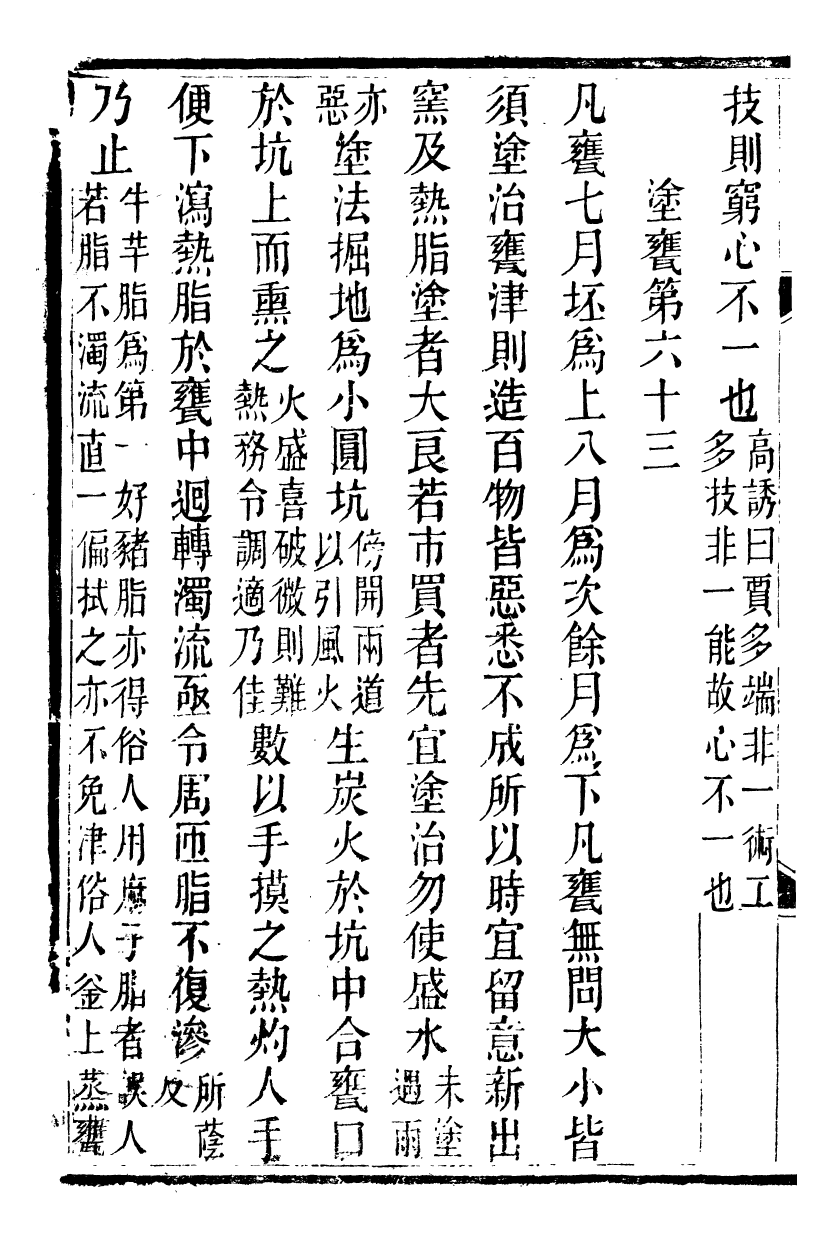 技則窮心不一也高誘曰賈多端非一術工多技非一能故心不一也
塗甕第六十三
凡甕七月坯爲上八月爲次餘月爲下凡甕無問大小皆
須塗治甕津則造百物皆惡悉不成所以時宜留意新出
窯及熱脂塗者大良若市買者先宜塗治勿使盛水未塗遇雨
亦惡塗法掘地爲小圓坑傍開兩道以引風火生炭火於坑中合甕口
於坑上而熏之火盛喜破微則難熱務令調適乃佳數以手摸之熱灼人手
便下瀉熱脂於甕中迴轉濁流亟令周匝脂不復滲所蔭
乃止牛羊脂爲第一好豬脂亦得俗人用麻子脂者誤人若脂不濁流直一偏拭之亦不免津俗人釜上蒸甕